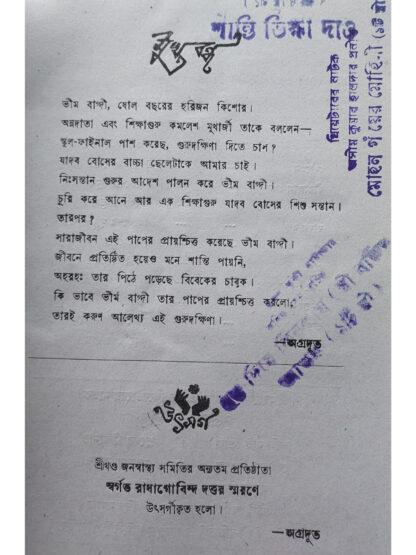 শান্তি ভিক্ষা দাও
মুখবন্ধ
থিয়েটারের নাটক
অসীম কুমার হালদার প্রণীত
ভীম বাগ্দী, ষোল বছরের হরিজন কিশোর।
অন্নদাতা এবং শিক্ষাগুরু কমলেশ মুখার্জী তাকে বললেন—
স্কুল-ফাইনাল পাশ করেছ, গুরুদক্ষিণা দিতে চাস?
যাদব বোসের বাচ্চা ছেলেটাকে আমার চাই।
নিঃসন্তান গুরুর আদেশ পালন করে ভীম বাগ্দী।
চুরি করে আনে আর এক শিক্ষাগুরু যাদব বোসের শিশু সন্তান।
তারপর?
সারাজীবন এই পাপের প্রায়শ্চিত্ত করেছে ভীম বাগ্দী।
জীবনে প্রতিষ্ঠিত হয়েও মনে শান্তি পায়নি,
অহরহঃ তার পিঠে পড়েছে বিবেকের চাবুক।
কি ভাবে ভীম বাগ্দী তার পাপের প্রায়শ্চিত্ত করলো,
তারই করুণ আলেখ্য এই গুরুদক্ষিণা।
—অগ্রদূত
উৎসর্গ
শ্রীখণ্ড জনস্বাস্থ্য সমিতির অন্যতম প্রতিষ্ঠাতা
স্বর্গত রাধাগোবিন্দ দত্তর স্মরণে
উৎসর্গীকৃত হলো।
—অগ্রদূত